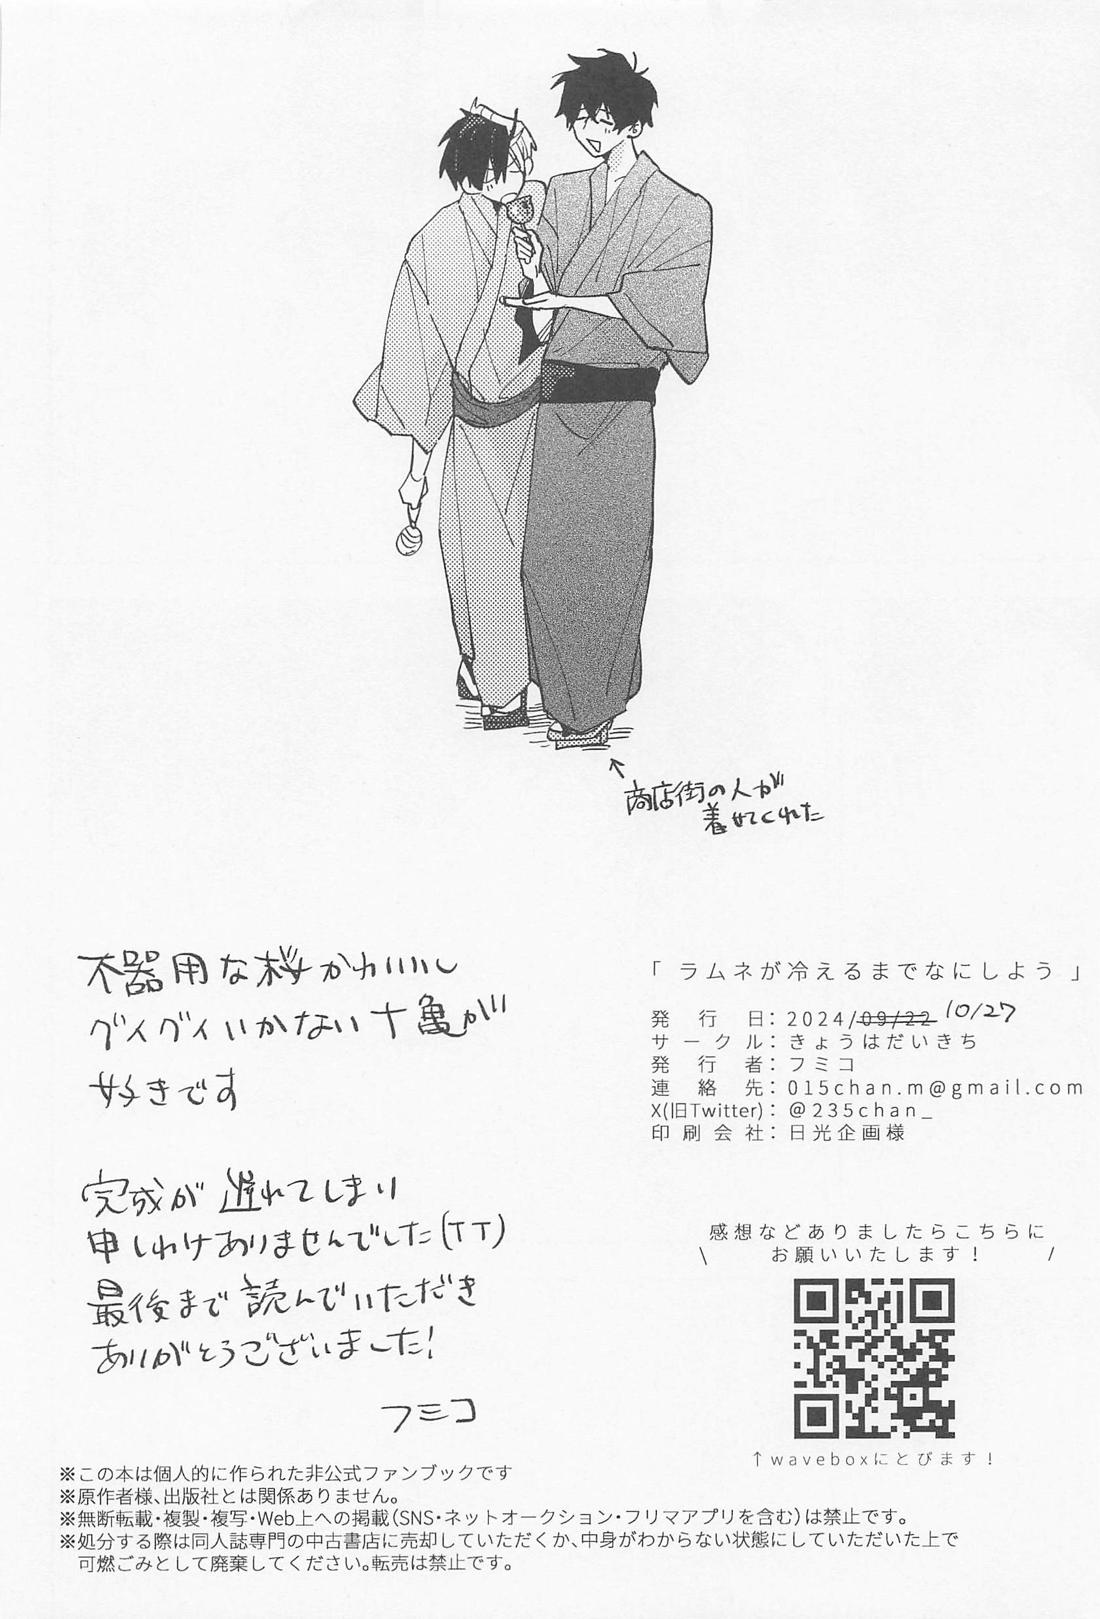 商店街の人が
着せてくれた
不器用な桜かわいいし
グイグイいかない十亀が
好きです
完成が遅れてしまい
申しわけありませんでした(TT)
最後まで読んでいただき
ありがとうございました!
フミコ
「ラムネが冷えるまでなにしよう」
発行日：2024/09/22 10/27
サークル：きょうはだいきち
発行者：フミコ
連絡先：015chan.m@gmail.com
X(旧Twitter)：@235chan_
印刷会社：日光企画様
感想などありましたらこちらに
\ お願いいたします！ /
↑waveboxにとびます！
※この本は個人的に作られた非公式ファンブックです
※原作者様、出版社とは関係ありません。
※無断転載・複製・複写・Web上への掲載（SNS・ネットオークション・フリマアプリを含む）は禁止です。
※処分する際は同人誌専門の中古書店に売却していただくか、中身がわからない状態にしていただいた上で
可燃ごみとして廃棄してください。転売は禁止です。